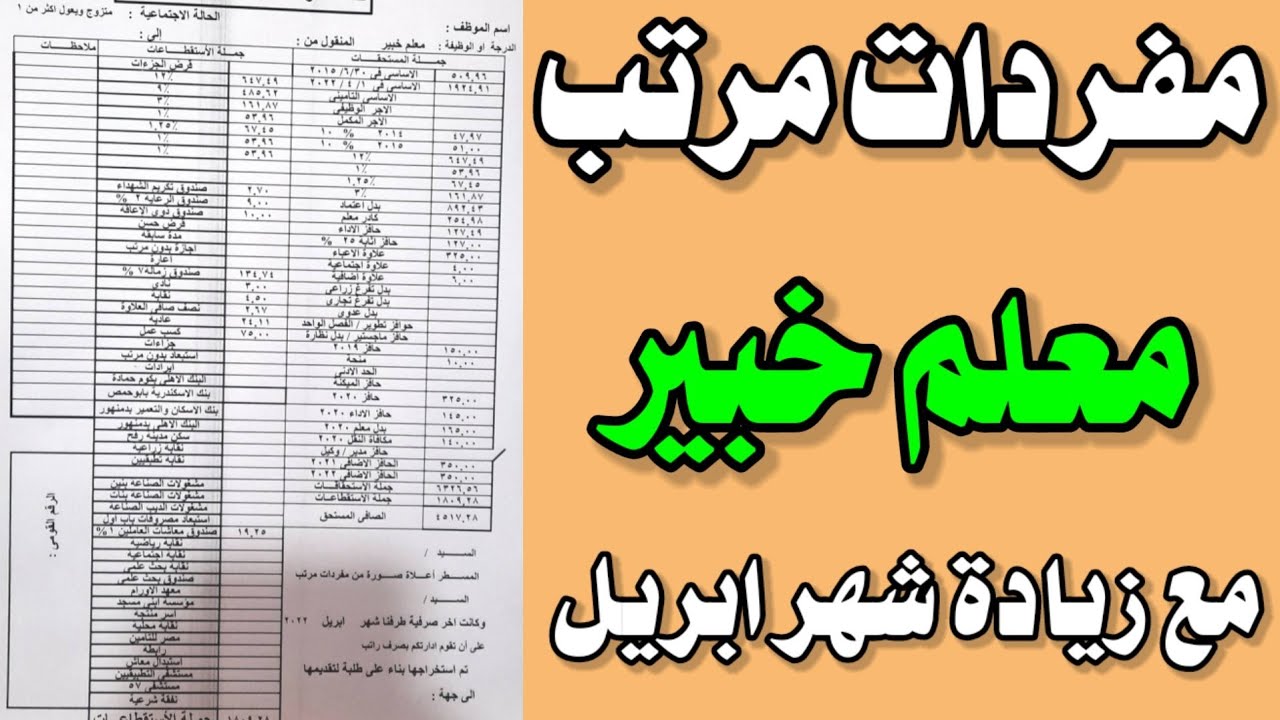 مفردات مرتب
معلم خبير
مع زيادة شهر ابريل
الحالة الاجتماعية : متزوج ويعول اكثر من ١
اسم الموظف :
الدرجة او الوظيفة : معلم خبير المنقول من : الى :
جملة المستحقات جملة الأستقطاعات ملاحظات
٥٠٩,٩٦ الاساسى فى ٢٠١٥/٦/٣٠ قرض الجزءات
١٩٢٤,٩١ الاساسى فى ٢٠٢٢/٤/١ ٦٤٧,٤٩ ١٢٪
الاساسى التامينى ٤٨٥,٦٢ ٩٪
الاجر الوظيفى ١٦١,٨٧ ٣٪
الاجر المكمل ٥٣,٩٦ ١٪
٤٧,٩٧ ٢٠١٤ % ١٠ ٦٧,٤٥ ١,٢٥٪
٥١,٠٠ ٢٠١٥ % ١٠ ٥٣,٩٦ ١٪
٦٤٧,٤٩ ١٢٪ ٥٣,٩٦ ١٪
٥٣,٩٦ ١٪
٦٧,٤٥ ١,٢٥٪
١٦١,٨٧ ٣٪ ٢,٧٠ صندوق تكريم الشهداء
٨٩٢,٤٣ بدل اعتماد ٩,٠٠ صندوق الرعاية ٢ %
٢٥٤,٩٨ كادر معلم ١٠,٠٠ صندوق ذوى الاعاقة
١٢٧,٤٩ حافز الاداء قرض حسن
١٢٧,٠٠ حافز اثابة ٢٥ % مدة سابقة
٣٢٥,٠٠ علاوة الاعباء اجازة بدون مرتب
٤,٠٠ علاوة اجتماعية اعارة
٦,٠٠ علاوة اضافية ١٣٤,٧٤ صندوق زمالة ٧ %
بدل تفرغ زراعى ٣,٠٠ نادى
بدل تفرغ تجارى ٤,٥٠ نقابة
بدل عدوى ٢,٦٧ نصف صافى العلاوة
حوافز تطوير / الفصل الواحد ٢٤,١١ عادية
حافز ماجستير / بدل نظارة ٧٥,٠٠ كسب عمل
١٥٠,٠٠ حافز ٢٠١٩ جزاءات
١٠,٠٠ منحة استبعاد بدون مرتب
الحد الادنى ايرادات
حافز الميكنة البنك الاهلى بكوم حمادة
٣٢٥,٠٠ حافز ٢٠٢٠ بنك الاسكندرية بابوحمص
١٤٥,٠٠ حافز الاداء ٢٠٢٠ بنك الاسكان والتعمير بدمنهور
١٦٥,٠٠ بدل معلم ٢٠٢٠ البنك الاهلى بدمنهور
١٤٠,٠٠ مكافاة النقل ٢٠٢٠ سكن مدينة رفح
حافز مدير / وكيل نقابة زراعية
٣٥٠,٠٠ الحافز الاضافى ٢٠٢١ نقابة تطبيقيين
٣٥٠,٠٠ الحافز الاضافى ٢٠٢٢
٦٣٢٦,٥٦ جملة الاستحقاقات مشغولات الصناعة بنين
١٨٠٩,٢٨ جملة الاستقطاعات مشغولات الصناعة بنات
٤٥١٧,٢٨ الصافى المستحق مشغولات الديب الصناعة
استبعاد مصروفات باب اول
١٩,٢٥ صندوق معاشات العاملين ١%
نقابة رياضية
نقابة اجتماعية
نقابة بحث علمى
صندوق بحث علمى
معهد الاورام
مؤسسة ابنى مسجد
اسر منتجه
نقابة محلية
مصر للتامين
رابطة
استبدال معاش
مستشفى التطبيقيين
مستشفى ٥٧
نفقة شرعية
١٨٠٩,٢٨ جملة الأستقطاعات
الرقم القومى :
السيد /
المسطر أعلاة صورة من مفردات مرتب
السيد /
وكانت اخر صرفية طرفنا شهر ابريل ٢٠٢٢
على أن تقوم ادارتكم بصرف راتب
تم استخراجها بناء على طلبة لتقديمها
الى جهة :